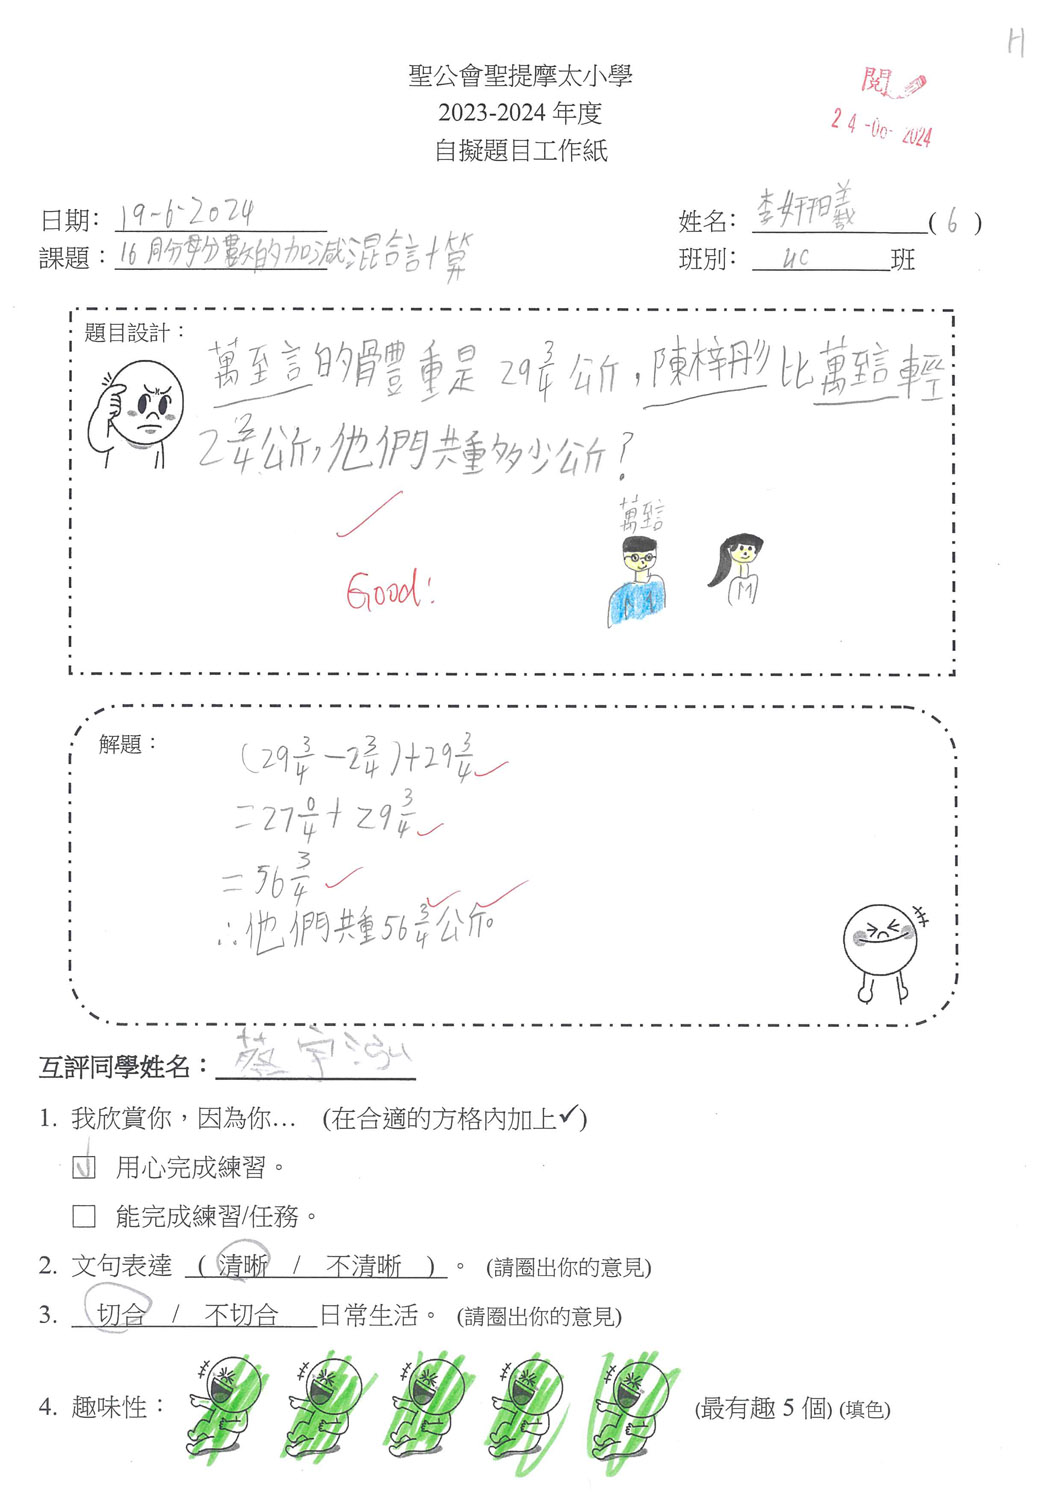 H
聖公會聖提摩太小學
2023-2024 年度
自擬題目工作紙
閱
24 -06- 2024
日期: 19-6-2024
姓名: 李妍曦 (6)
課題：16 同分母分數的加減混合計算
班別: 4C 班
題目設計：
萬至言的體重是 29 3/4 公斤，陳梓彤比萬至言輕
2 3/4 公斤，他們共重多少公斤？
萬至言
Good!
M
解題：
(29 3/4 − 2 3/4) + 29 3/4
= 27 0/4 + 29 3/4
= 56 3/4
∴他們共重 56 3/4 公斤。
互評同學姓名：蔡宇涵
1. 我欣賞你，因為你… (在合適的方格內加上✓)
☑ 用心完成練習。
☐ 能完成練習/任務。
2. 文句表達 ( 清晰 / 不清晰 ) 。 (請圈出你的意見)
3. 切合 / 不切合 日常生活。 (請圈出你的意見)
4. 趣味性： (最有趣 5 個) (填色)